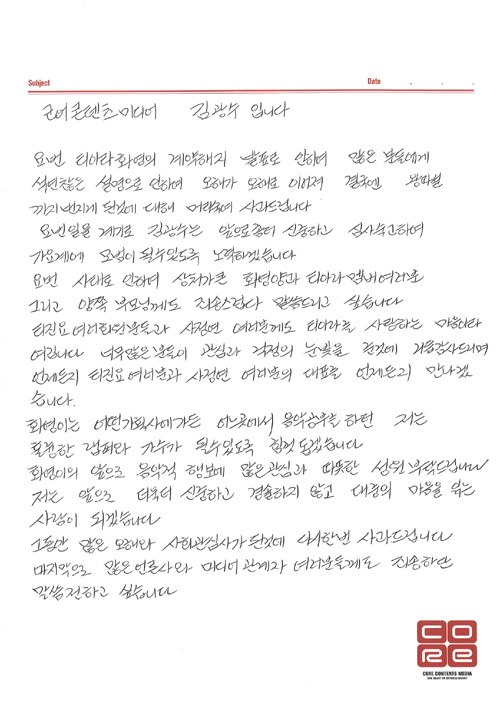 Subject Date . . .
코어콘텐츠미디어 김광수 입니다
요번 티아라 화영의 계약해지 발표로 인하여 많은 분들에게
석연찮은 설명으로 인하여 오해가 오해로 이어져 결국엔 왕따설
까지 번지게 된것에 대해 머리숙여 사과드립니다
요번일을 계기로 김광수는 앞으로좀더 신중하고 심사숙고하여
가요계에 모범이 될수있도록 노력하겠습니다
요번 사태로 인하여 상처가큰 화영양과 티아라 멤버여러분
그리고 양쪽 부모님께도 죄송스럽다 말씀드리고 싶습니다
티진요 여러회원분들과 사정연 여러분께도 티아라를 사랑하는 마음이라
여깁니다 너무많은분들이 관심과 걱정의 눈빛을 준것에 거듭감사드리며
언제든지 티진요 여러분과 사정연 여러분의 대표를 언제든지 만나겠
습니다.
화영이는 어떤기획사에가든 어느곳에서 음악공부를 하던 저는
훌륭한 랩퍼와 가수가 될수있도록 힘껏 돕겠습니다
화영이의 앞으로 음악적 행보에 많은관심과 따뜻한 성원 부탁드립니다
저는 앞으로 더욱더 신중하고 경솔하지 않고 대중의 마음을 읽는
사람이 되겠습니다
그동안 많은 오해와 사회관심사가 된것에 다시한번 사과드립니다
마지막으로 많은언론사와 미디어 관계자 여러분들께도 죄송하단
말씀전하고 싶습니다
CORE
CORE CONTENTS MEDIA